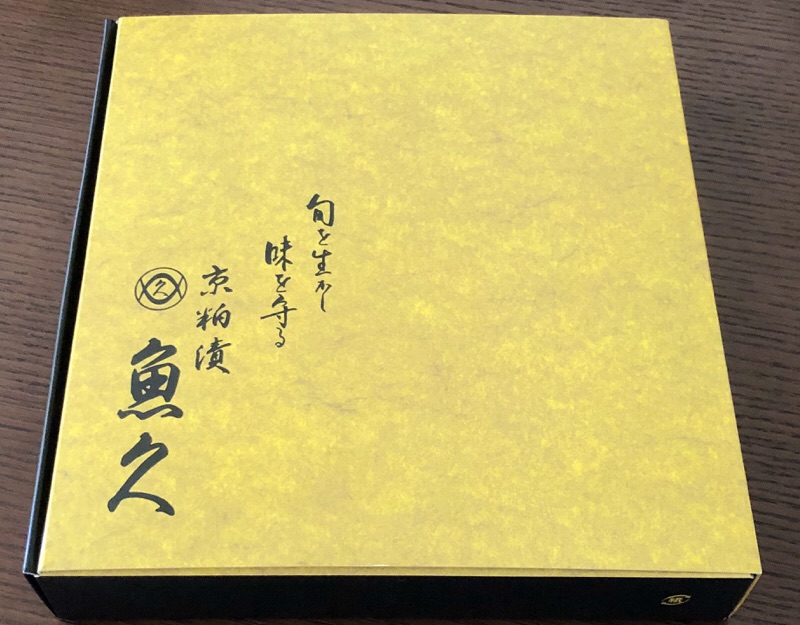 旬を生かし
味を守る
京粕漬
久
魚久